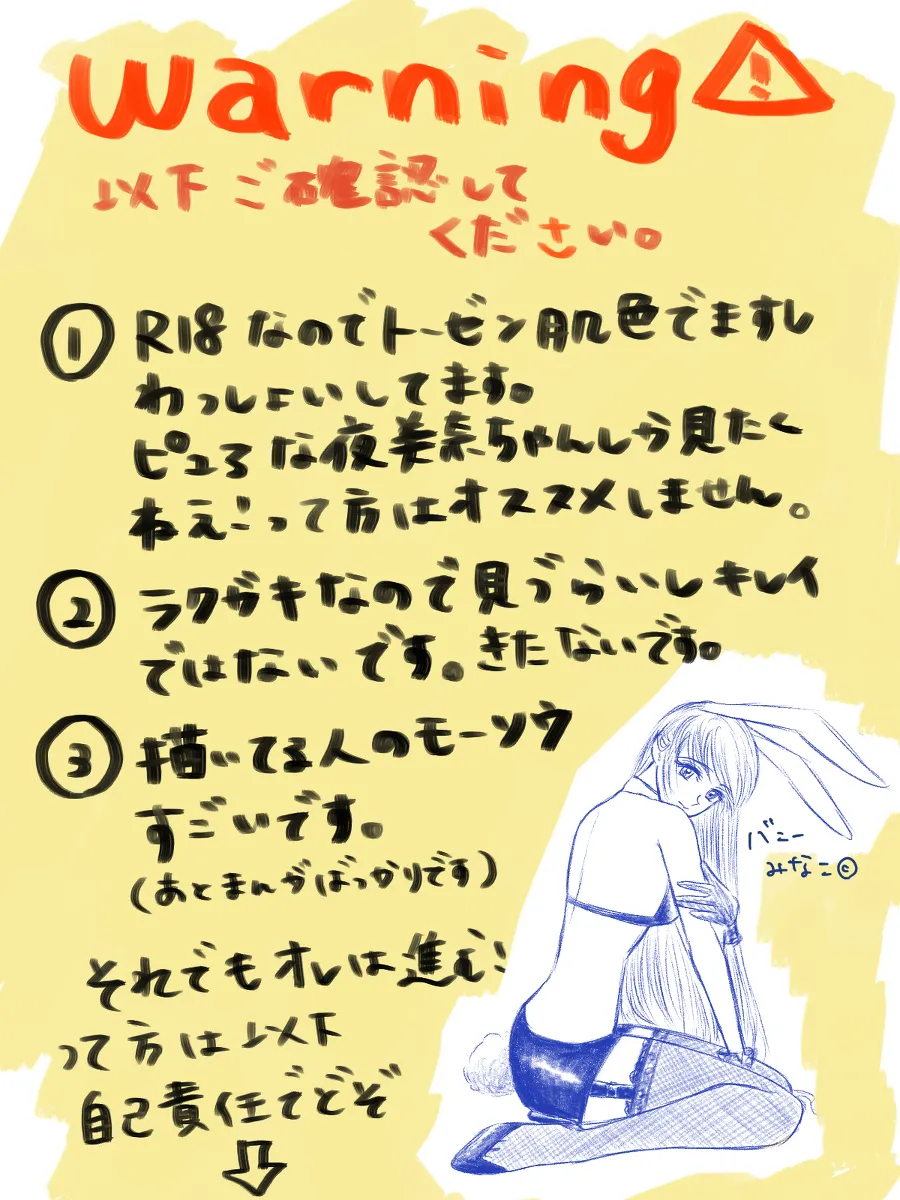 Warning⚠
以下ご確認して
ください。
① R18なのでトーゼン肌色でますし
わっしょいしてます。
ピュろな夜美奈ちゃんしか見たく
ねえ!って方はオススメしません。
② ラクガキなので見づらいしキレイ
ではないです。きたないです。
③ 描いてる人のモーソウ
すごいです。
(あとまんがばっかりです)
それでもオレは進む!
って方は以下
自己責任でどぞ
⇩
バニー
みなこ©